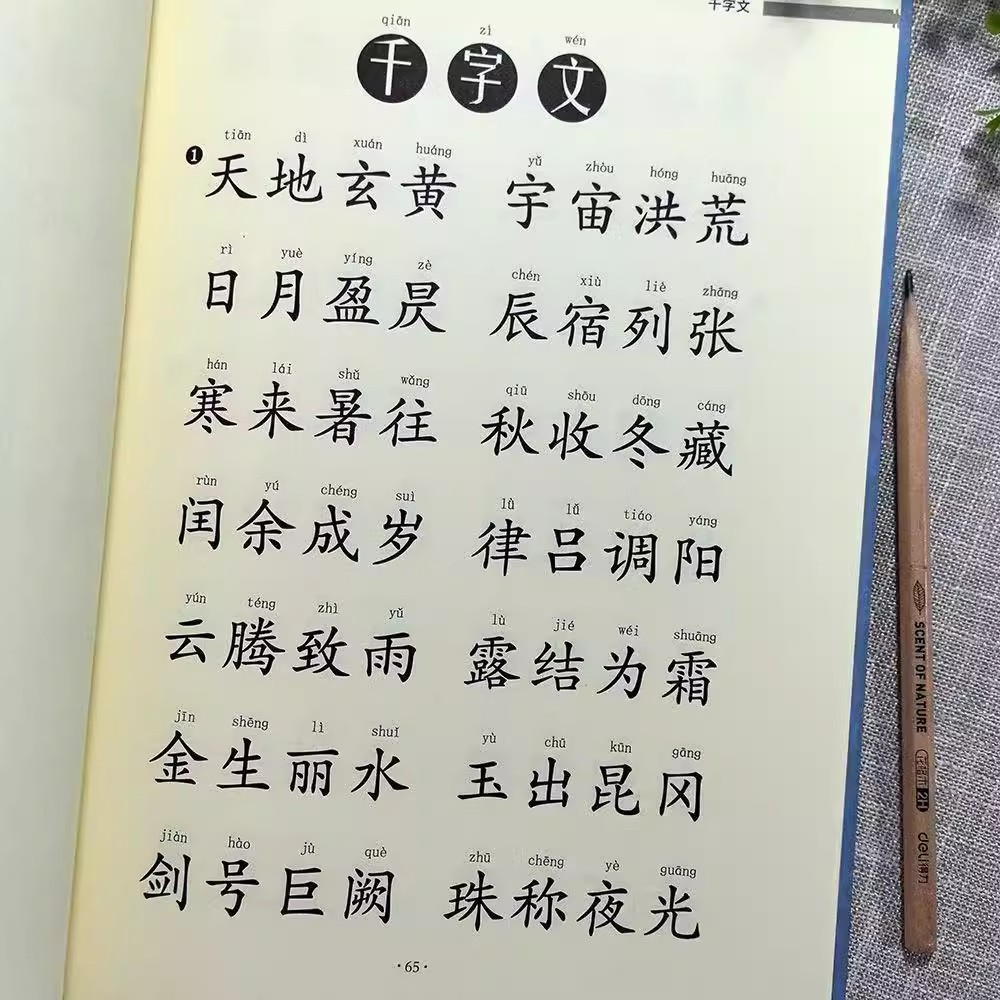 千字文
qiān zì wén
千字文
tiān dì xuán huáng yǔ zhòu hóng huāng
❶ 天地玄黄 宇宙洪荒
rì yuè yíng zè chén xiù liè zhāng
日月盈昃 辰宿列张
hán lái shǔ wǎng qiū shōu dōng cáng
寒来暑往 秋收冬藏
rùn yú chéng suì lǜ lǚ tiáo yáng
闰余成岁 律吕调阳
yún téng zhì yǔ lù jié wéi shuāng
云腾致雨 露结为霜
jīn shēng lì shuǐ yù chū kūn gāng
金生丽水 玉出昆冈
jiàn hào jù què zhū chēng yè guāng
剑号巨阙 珠称夜光
·65·
SCENT OF NATURE
2H
deli得力